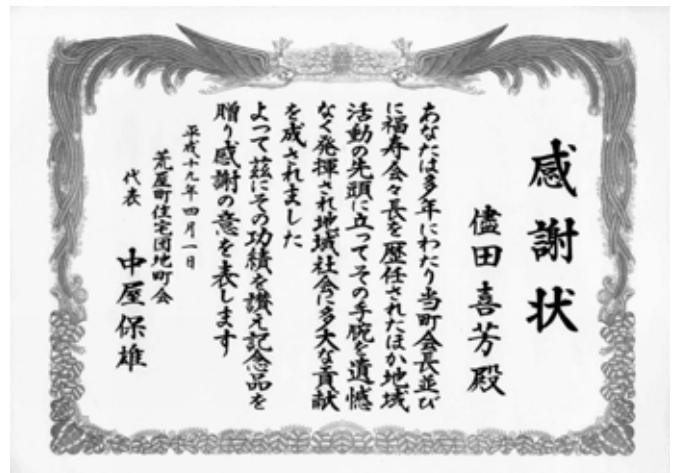 感謝状
儘田喜芳殿
あなたは多年にわたり当町会長並び
に福寿会々長を歴任されたほか地域
活動の先頭に立ってその手腕を遺憾
なく発揮され地域社会に多大な貢献
を成されました
よって茲にその功績を讃え記念品を
贈り感謝の意を表します
平成十九年四月一日
荒屋町住宅団地町会
代表 中屋保雄